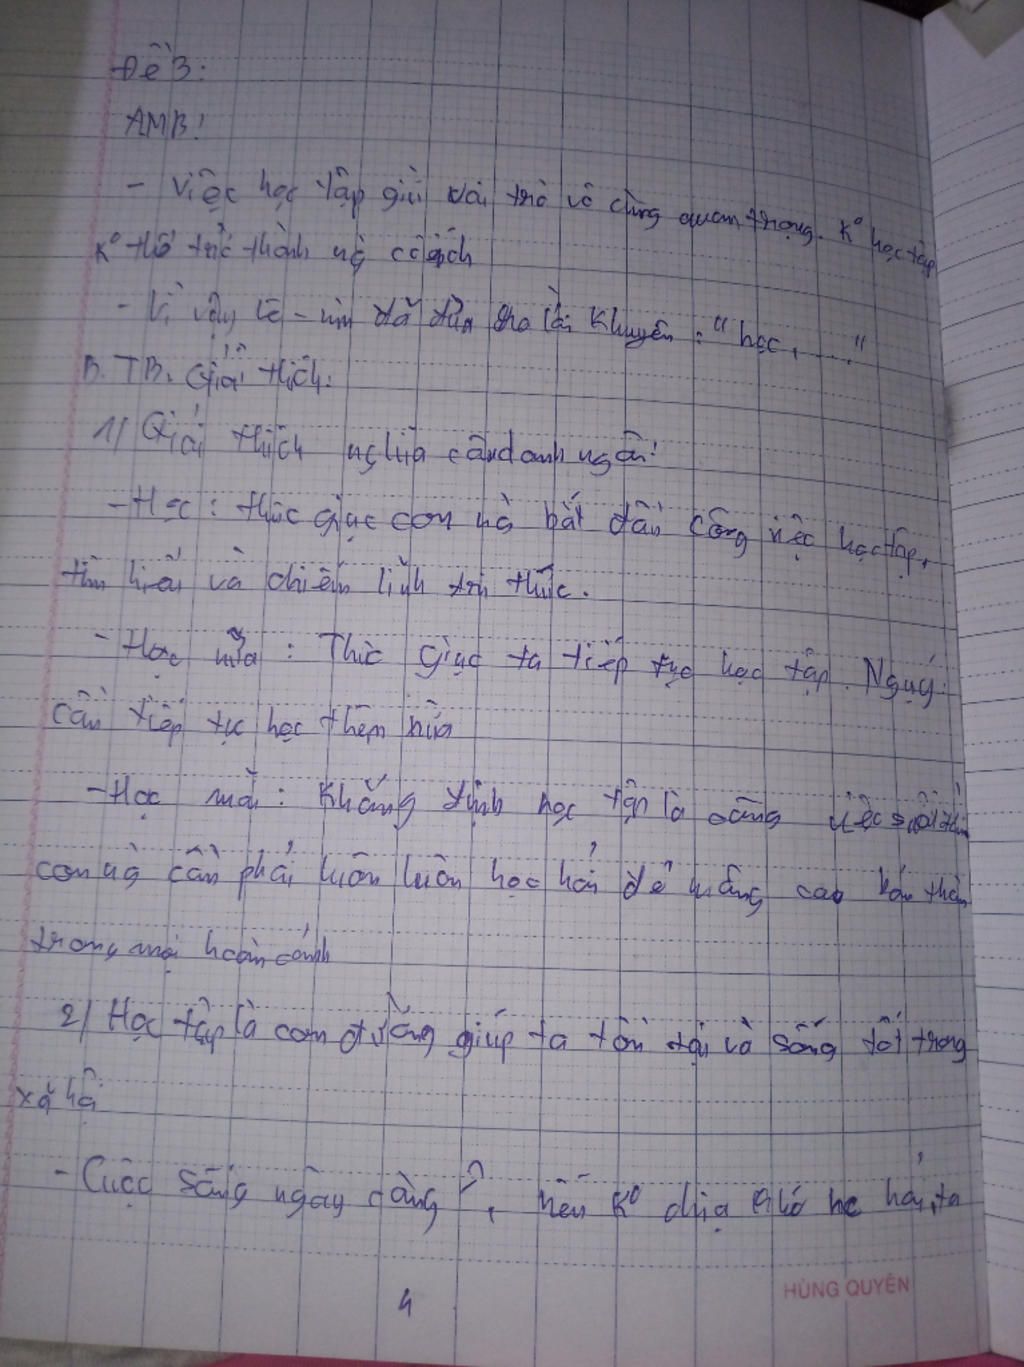 Đề 3:
A MB:
- Việc học tập giữ vai trò vô cùng quan trọng. K° học tập
K° thể trở thành ng` có ích
- Vì vậy Lê-nin đã đưa ra lời khuyên: "học, ....."
B. TB. Giải thích:
1/ Giải thích nghĩa câu danh ngôn:
- Học: thúc giục con ng` bắt đầu công việc học tập,
tìm hiểu và chiếm lĩnh tri thức.
- Học nữa: Thúc giục ta tiếp tục học tập. Ngụ ý:
cần tiếp tục học thêm nữa
- Học mãi: Khẳng định học tập là công việc suốt đời
con ng` cần phải luôn luôn học hỏi để nâng cao bản thân
trong mọi hoàn cảnh
2/ Học tập là con đường giúp ta tồn tại và sống tốt trong
xã hội
- Cuộc sống ngày càng, nếu K° chịu khó học hỏi, ta
4
HÙNG QUYÊN